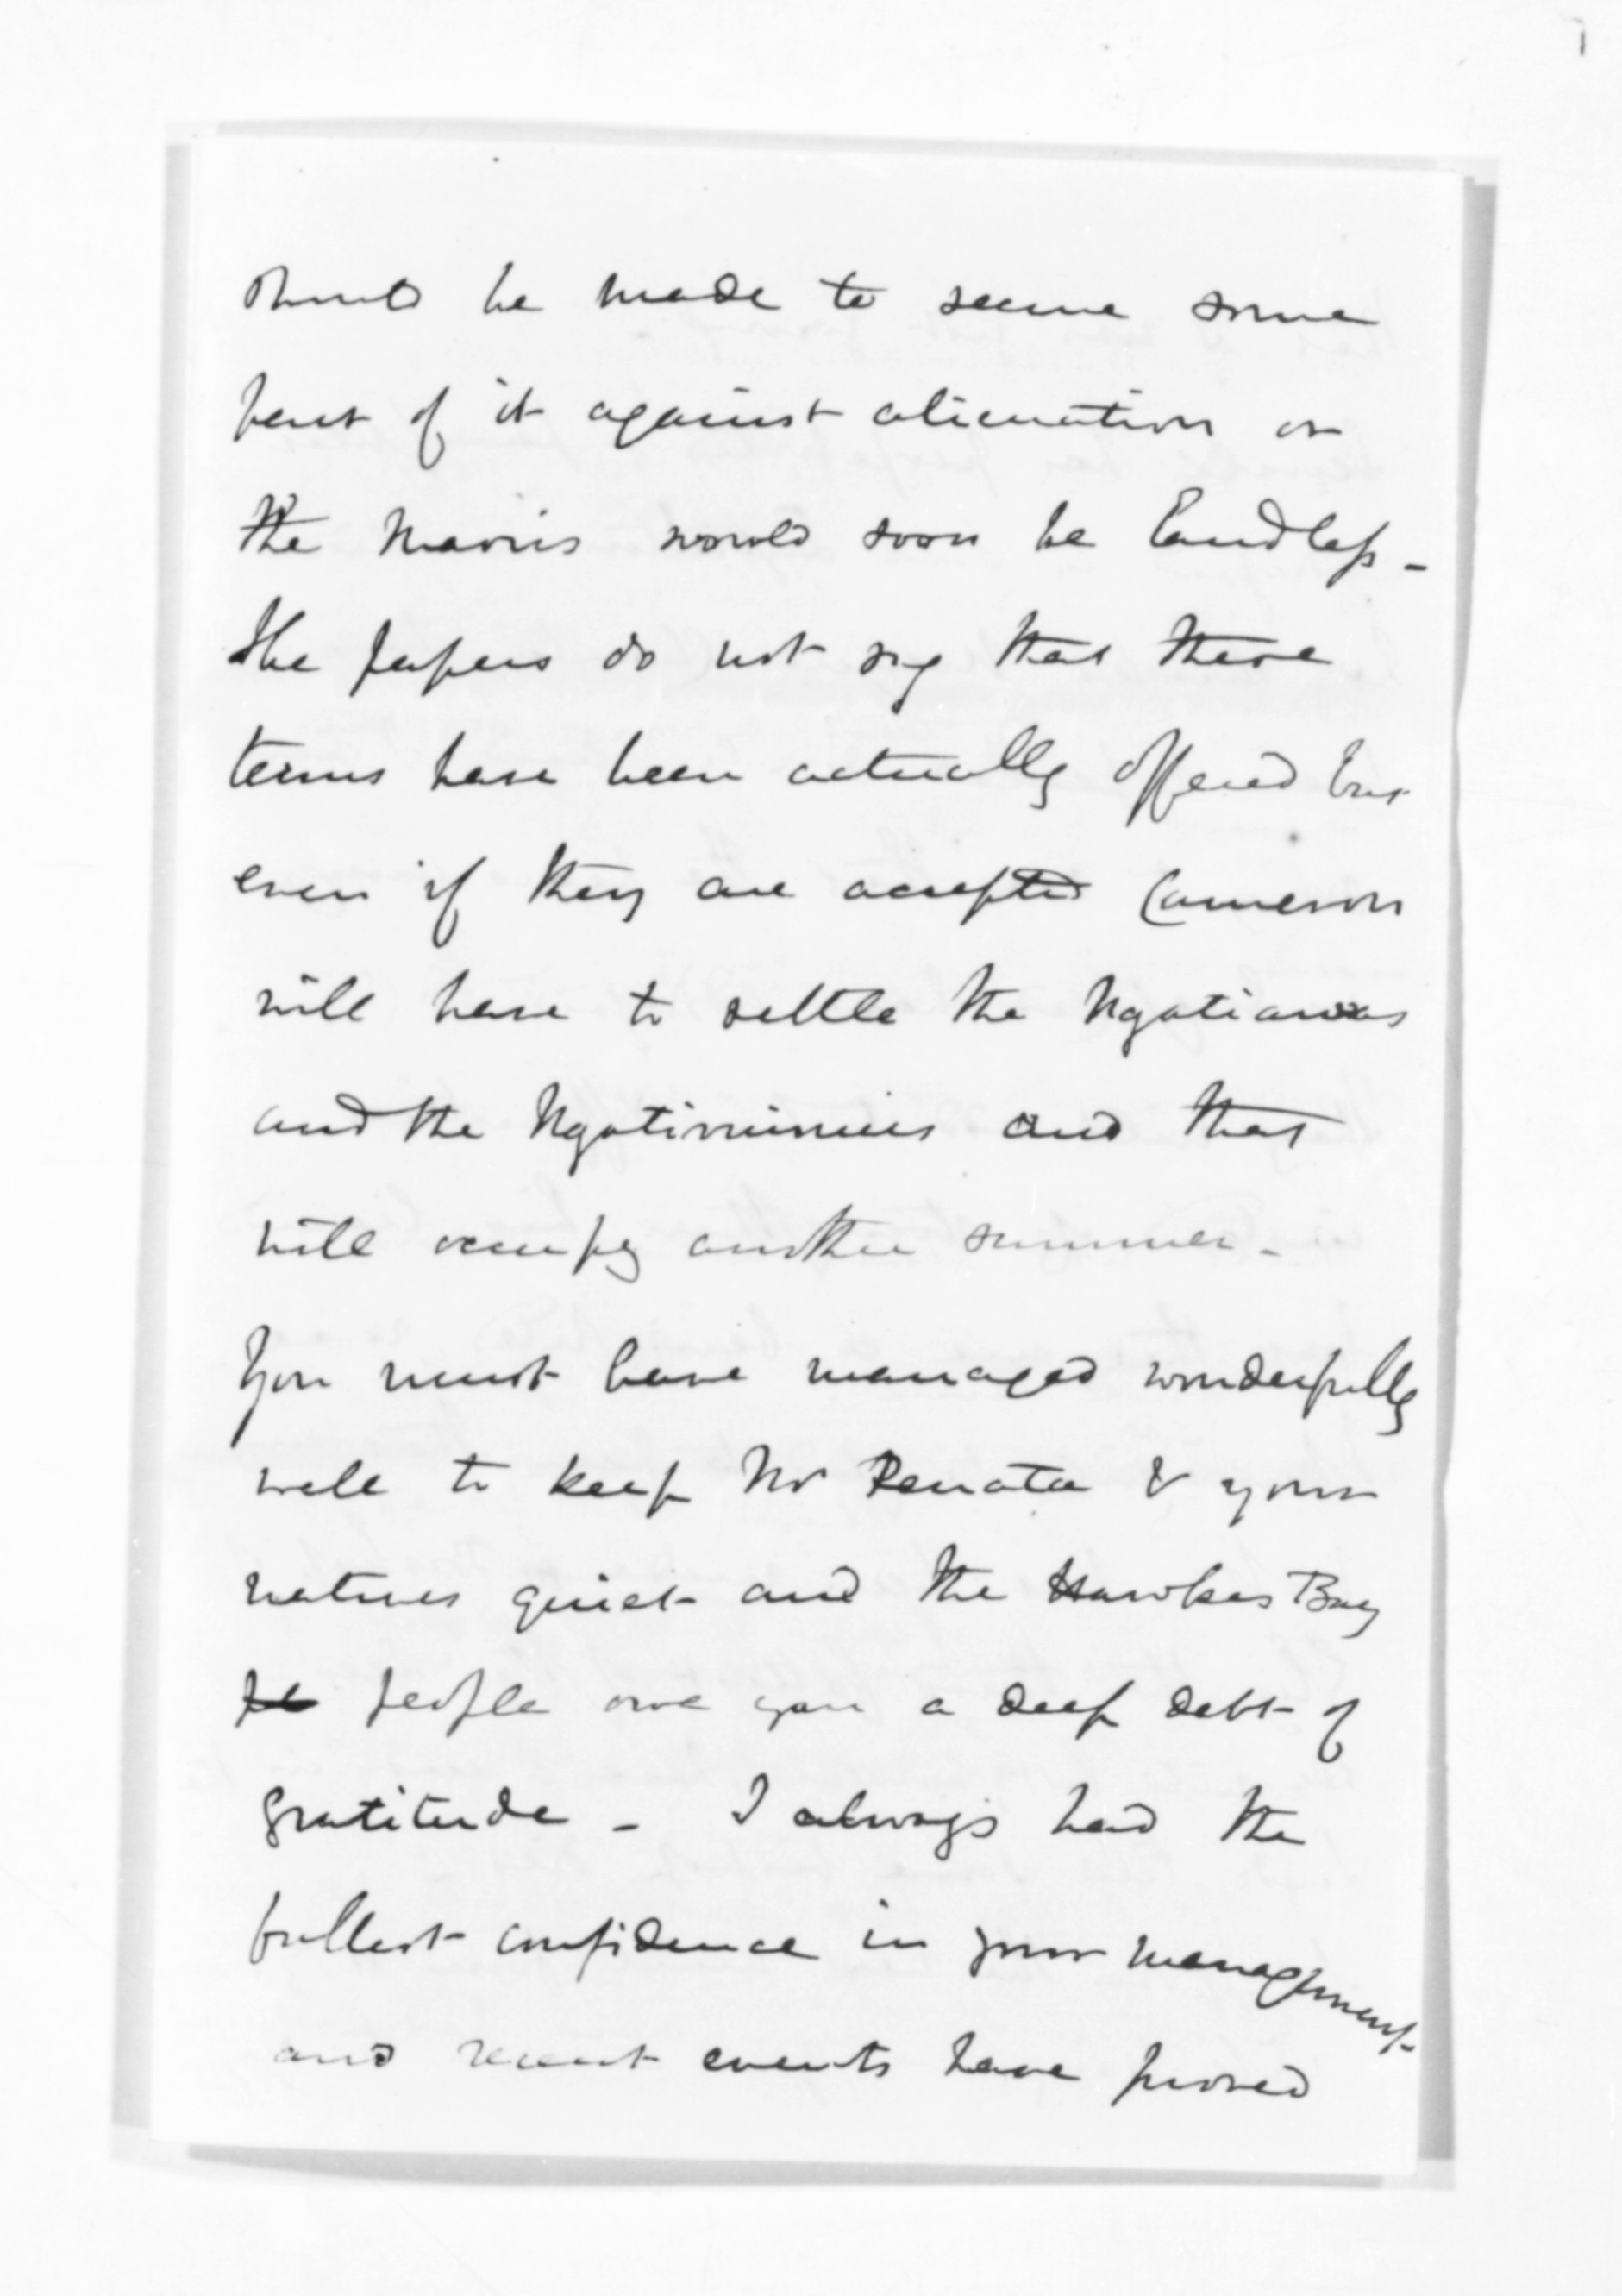 should be made to secure some
part of it against alienation or
the Maoris would soon be landless -
The papers do not say that these
terms have been actually offered but
even if they are accepted Cameron
will have to settle the Ngatiawas
and the Ngatiruinuies and that
will occupy another summer -
You must have managed wonderfully
well to keep Mr Renata & your
natives quiet and the Hawkes Bay
pe people owe you a deep debt of
gratitude - I always had the
fullest confidence in your management
and recent events have proved